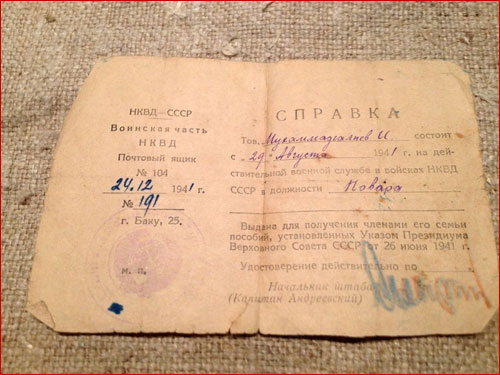 НКВД—СССР
Воинская часть
НКВД
Почтовый ящик
№ 104
24.12 1941 г.
№ 191
г. Баку, 25.
М. П.
СПРАВКА
Тов. И. состоит
с „29" Августа 1941 г. на дей-
ствительной военной службе в войсках НКВД
СССР в должности Повара
Выдана для получения членами его семьи
пособий, установленных Указом Президиума
Верховного Совета СССР от 26 июня 1941 г.
Удостоверение действительно по
Начальник штаба
(Капитан Андреевский)